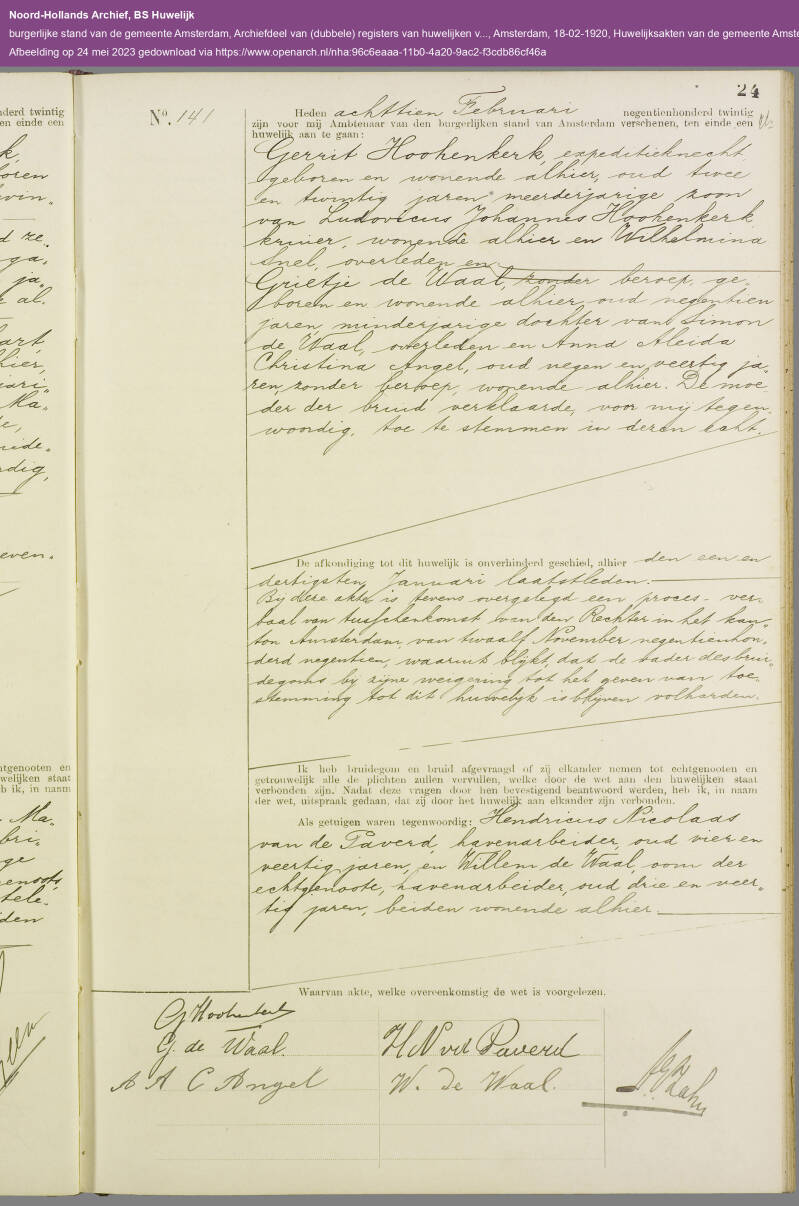 Noord-Hollands Archief, BS Huwelijk
burgerlijke stand van de gemeente Amsterdam, Archiefdeel van (dubbele) registers van huwelijken v..., Amsterdam, 18-02-1920, Huwelijksakten van de gemeente Amste
Afbeelding op 24 mei 2023 gedownload via https://www.openarch.nl/nha:96c6eaaa-11b0-4a20-9ac2-f3cdb86cf46a
24
No. 141
Heden achttien Februari negentienhonderd twintig
zijn voor mij Ambtenaar van den burgerlijken stand van Amsterdam verschenen, ten einde een
huwelijk aan te gaan:
Gerrit Hoohenkerk, expeditieknecht
geboren en wonende alhier, oud twee
en twintig jaren meerderjarige zoon
van Ludovicus Johannes Hoohenkerk
kruier, wonende alhier en Wilhelmina
Snel, overleden en
Grietje de Waal, zonder beroep, ge-
boren en wonende alhier, oud negentien
jaren, minderjarige dochter van Simon
de Waal, overleden en Anna Aleida
Christina Angel, oud negen en veertig ja-
ren, zonder beroep, wonende alhier. De moe-
der der bruid verklaarde, voor mij tegen-
woordig, toe te stemmen in deren echt.
De afkondiging tot dit huwelijk is onverhinderd geschied, alhier den een en
dertigsten Januari laatstleden.
Bij deze akte is tevens overgelegd een proces-ver-
baal van tusschenkomst van den Rechter in het kan-
ton Amsterdam, van twaalf November negentienhon-
derd negentien, waaruit blijkt, dat de vader des brui-
degoms bij zijne weigering tot het geven van toe-
stemming tot dit huwelijk is blijven volharden.
Ik heb bruidegom en bruid afgevraagd of zij elkander nemen tot echtgenooten en
getrouwelijk alle de plichten zullen vervullen, welke door de wet aan den huwelijken staat
verbonden zijn. Nadat deze vragen door hen bevestigend beantwoord werden, heb ik, in naam
der wet, uitspraak gedaan, dat zij door het huwelijk aan elkander zijn verbonden.
Als getuigen waren tegenwoordig: Hendricus Nicolaas
van de Paverd, havenarbeider, oud vier en
veertig jaren, en Willem de Waal, oom der
echtgenoote, havenarbeider, oud drie en veer-
tig jaren, beiden wonende alhier
Waarvan akte, welke overeenkomstig de wet is voorgelezen.
G Hoohenkerk
G. de Waal.
A A C Angel
H N vd Paverd
W. de Waal.